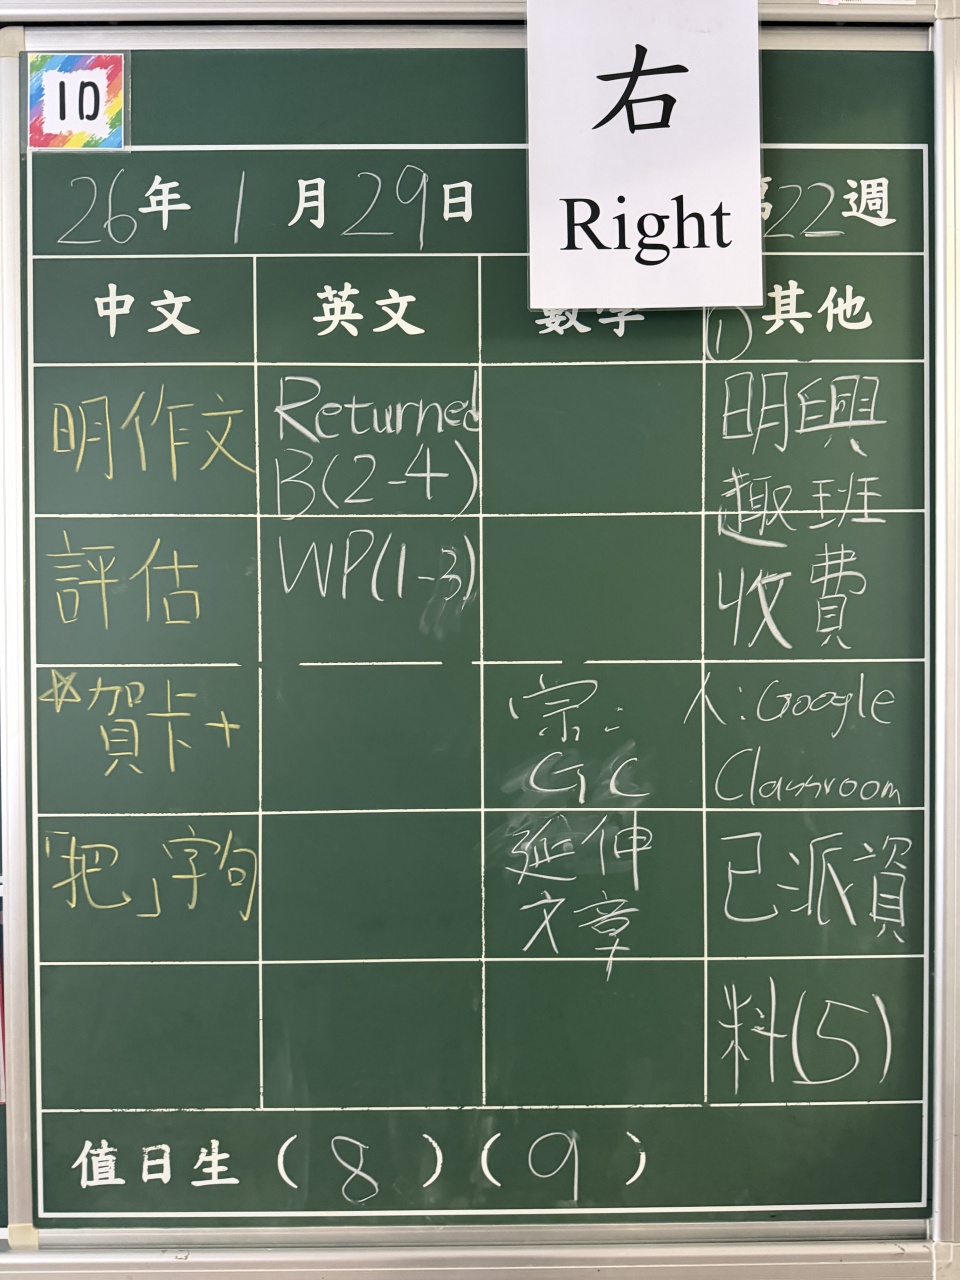 1D
右
Right
26年1月29日 第22週
中文 英文 數學 ①其他
明作文
評估
*賀卡+
「把」字句
Returned
B(2-4)
WP(1-3)
宗:
GC
延伸
文章
明興
趣班
收費
人:Google
Classroom
已派資
料(5)
值日生(8)(9)